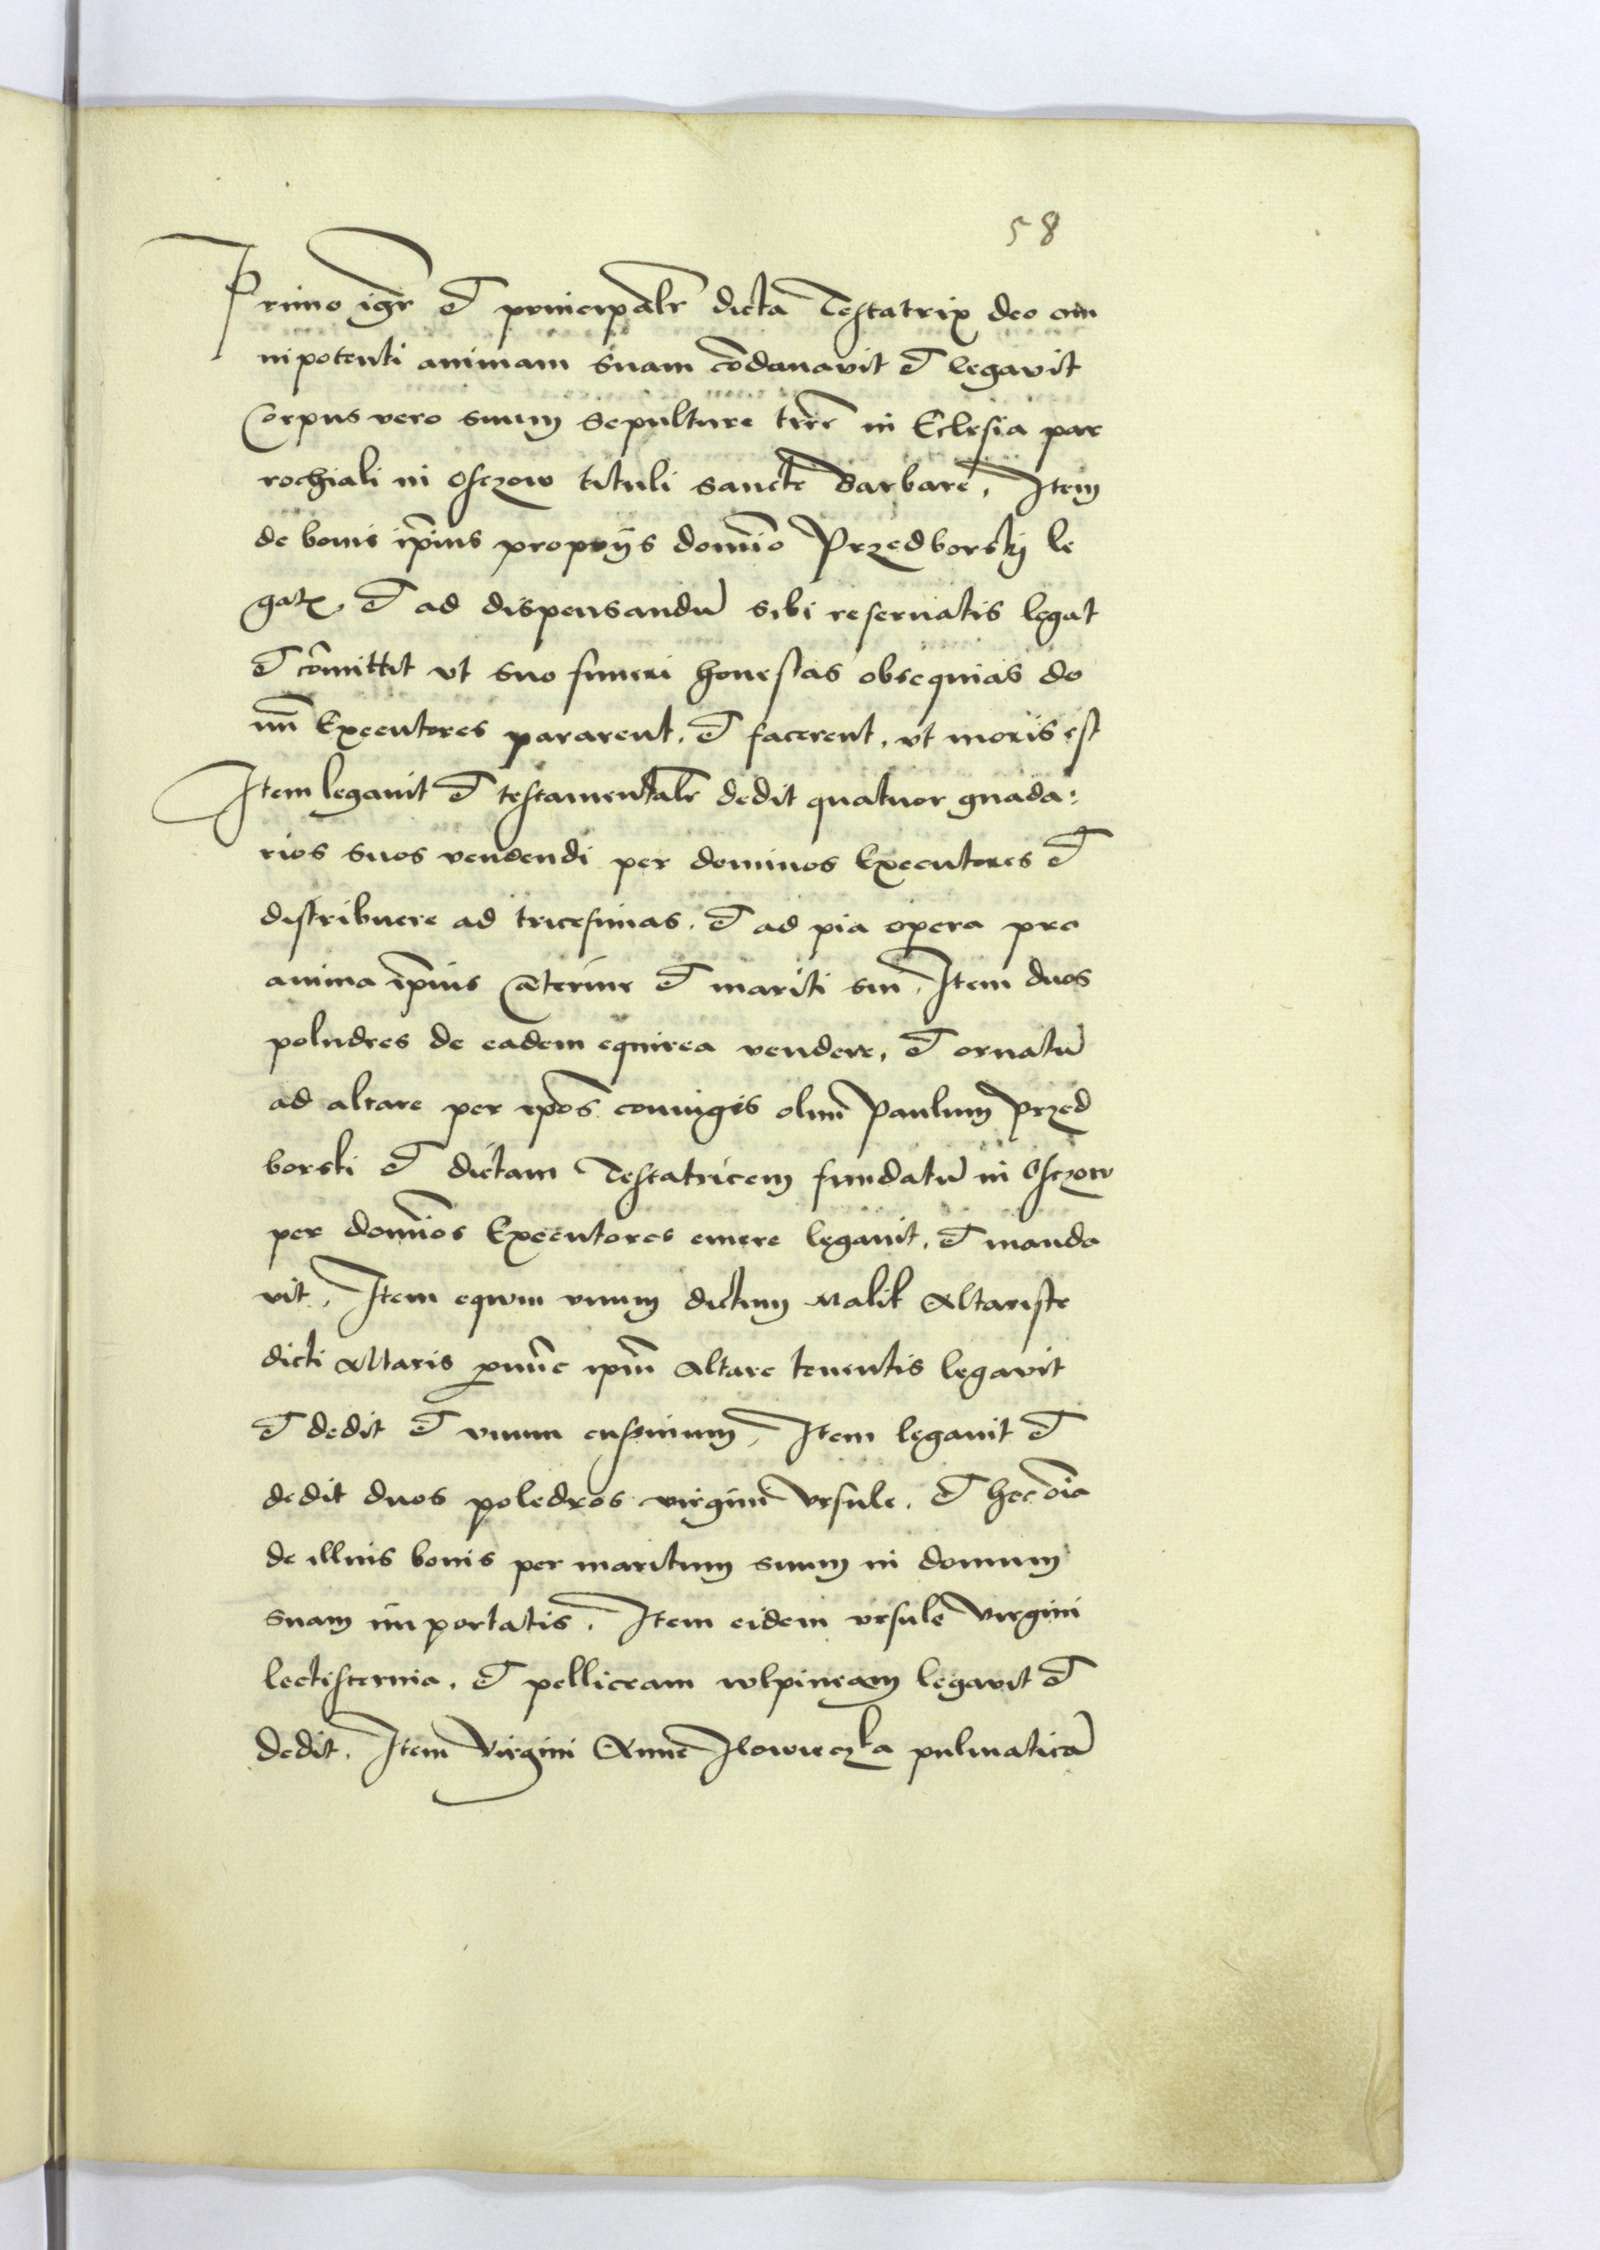 58
Primo igr̄ et principalr̄ dicta Testatrix deo om
nipotenti animam suam co͞danavit et legavit
Corpus vero suum sepulture trr̄e in Eclesia par
rochiali in Osczow tituli sancte Barbare, Item
de bonis ip̄ius proprijs domīo Przedborskj le
gatꝭ et ad dispensandū sibi reseruatis legat
et com̄ittit vt suo funeri honestas obsequias do
mī Executores pararent, et facerent, vt moris est
Item legauit et testamentalr̄ dedit quatuor gnada:
rios suos vendendi per dominos Executores et
distribuere ad tricesimas, et ad pia opera pro
anima ip̄ius Caterine et mariti sui, Item duos
poludres de eadem equirea vendere, et ornatū
ad altare per ip̄os coniuges olim Paulum Przed
borski et dictam Testatricem fundatū in Osczow
per domīos Executores emere legauit, et manda
vit, Item equum vnum dictum Malik Altariste
dicti Altaris p̱nūc ip̄m Altare tenentis legavit
et dedit et vnum cussinum, Item legauit et
dedit duos poledros virginī Vrsule, et hec oīa
de illius bonis per maritum suum in domum
suam importatis, Item eidem vrsule Virgini
lectisternia, et pelliceam wlpineam legavit et
dedit, Item Virgini Anne Ilowieczka puluaticā